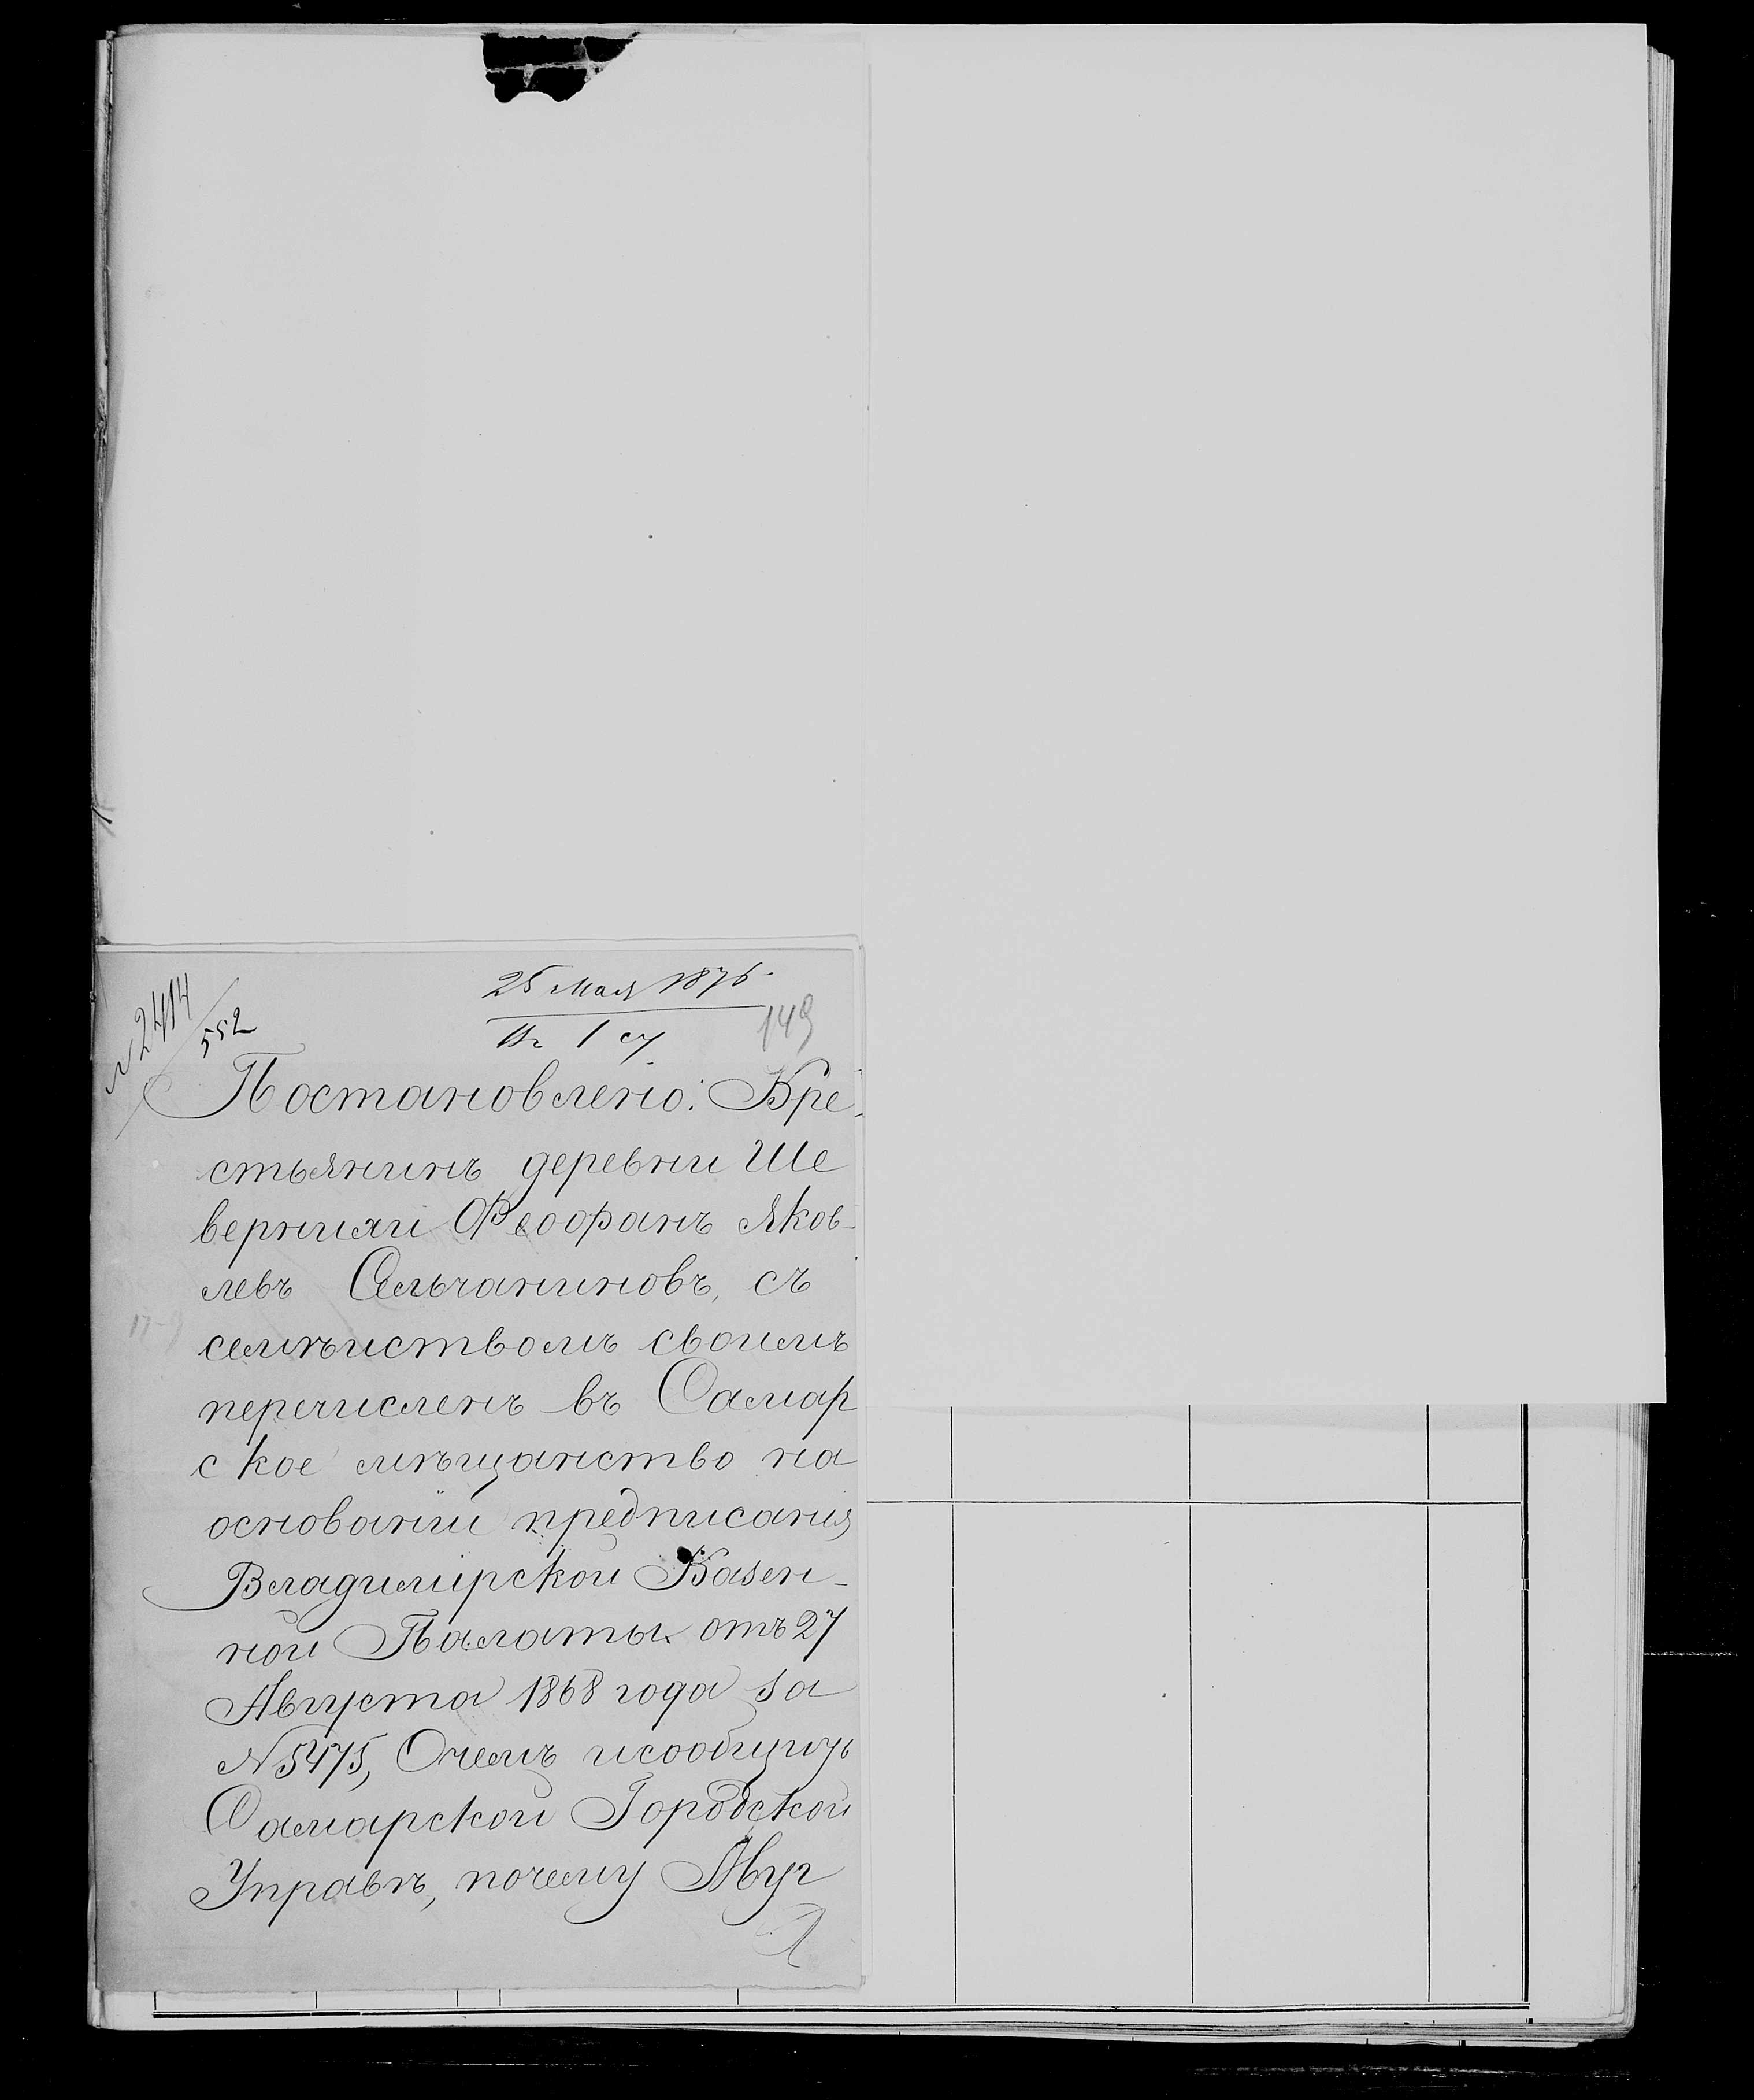 № 2414
552
25 Мая 1876
149
Постановлено: Кре-
стьянинъ деревни Ше
вернихи Феофанъ Яков-
левъ Сельчаниновъ, съ
семѣйствомъ своимъ
перечисленъ въ Самар
ское мѣщанство на
основаніи предписанія
Владимірской Казен-
ной Палаты отъ 27
Августа 1868 года за
№ 5475, О чемъ и сообщить
Самарской Городской
Управѣ, почему